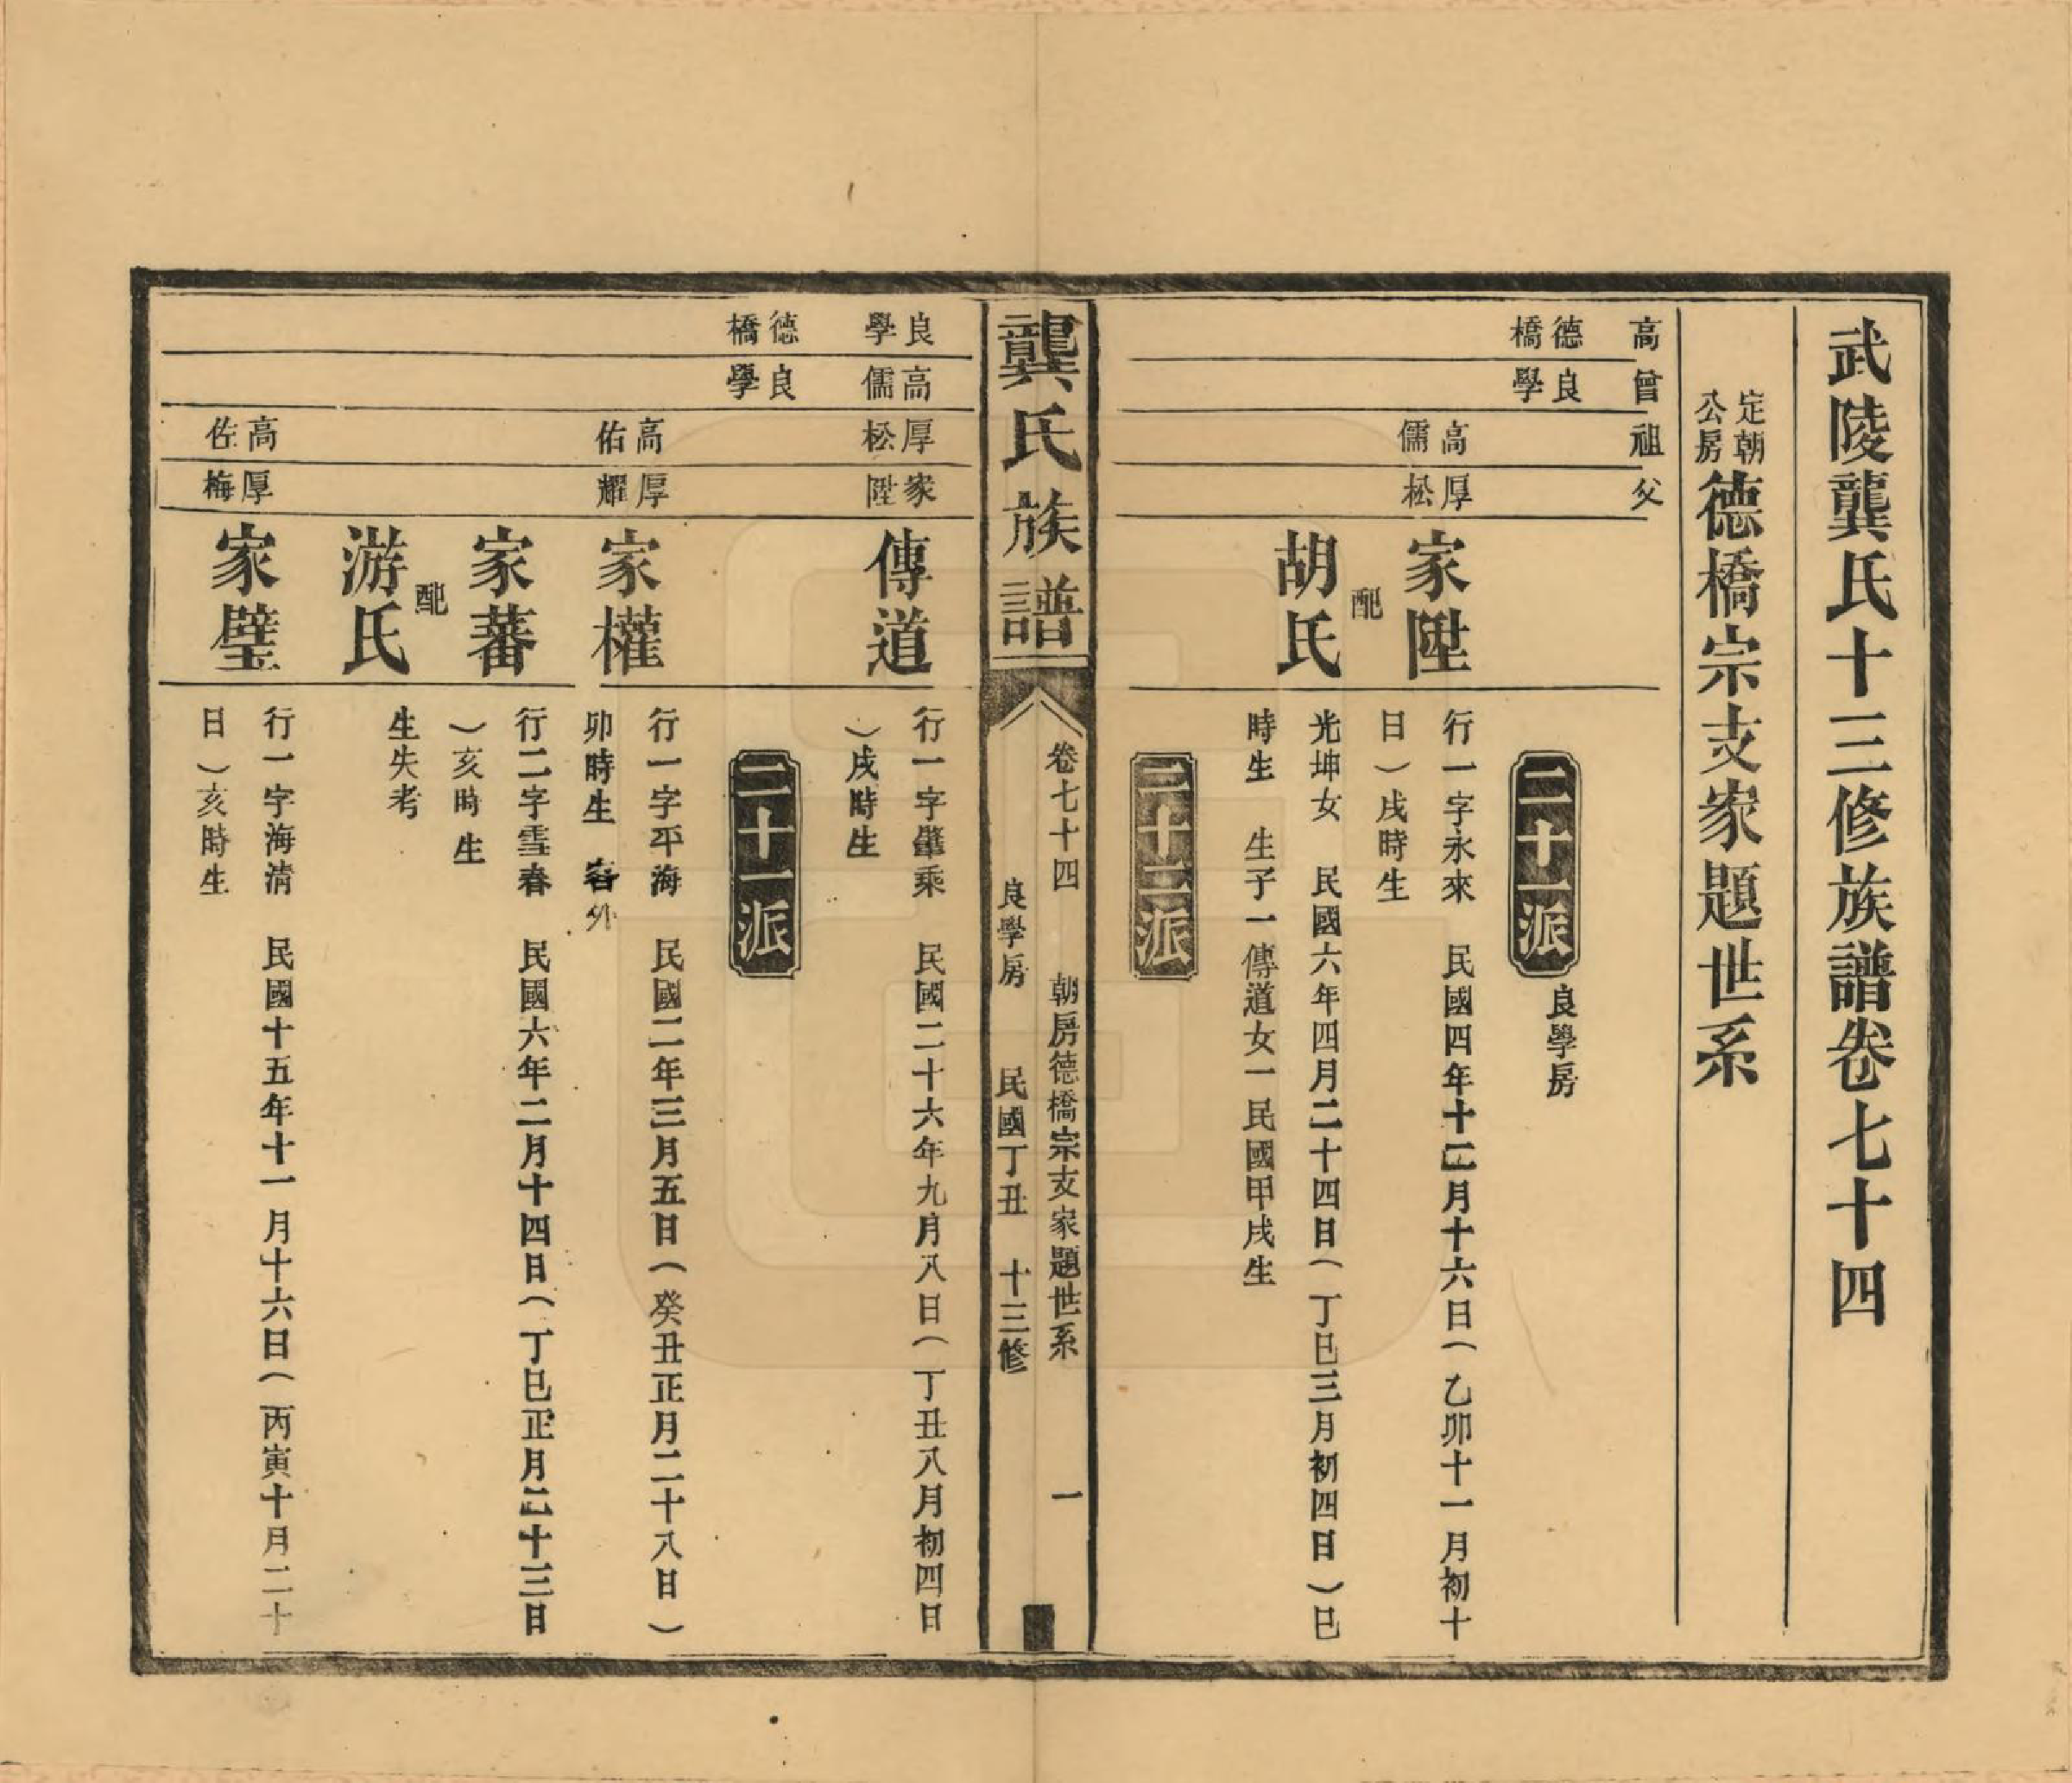 武陵龔氏十三修族譜卷七十四
定朝公房德橋宗支家題世系
高
曾
祖
父
德橋
良學
二十一派
良學房
高儒
厚松
家陞
行一字永來 民國四年十二月十六日(乙卯十一月初十
日)戌時生
配
胡氏
光坤女 民國六年四月二十四日(丁巳三月初四日)巳
時生 生子一傳道女一民國甲戌生
二十二派
龔氏族譜
卷七十四 朝房德橋宗支家題世系 一
良學房 民國丁丑 十三修
良學
高儒
厚松
家陞
傳道
行一字肇乘 民國二十六年九月八日(丁丑八月初四日
)戌時生
德橋
良學
二十一派
高佑
厚耀
家權
行一字平海 民國二年三月五日(癸丑正月二十八日)
卯時生 客外
家蕃
行二字雪春 民國六年二月十四日(丁巳正月二十三日
)亥時生
配
游氏
生失考
高佐
厚梅
家璧
行一字海清 民國十五年十一月十六日(丙寅十月二十
日)亥時生